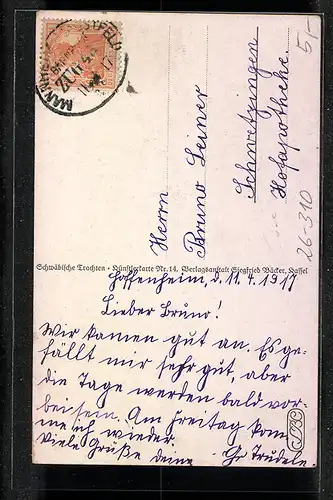 Herrn
Bruno Leiner
Schwetzingen
Hofapotheke.
5/-
26-310
Schwäbische Trachten · Künstlerkarte Nr. 14. Verlagsanstalt Siegfried Bäcker, Kassel
Hoffenheim, d. 11.4.1917
Lieber Bruno!
Wir kamen gut an. Es ge-
fällt mir sehr gut, aber
die Tage werden bald vor-
bei sein. Am Freitag kom
me ich wieder.
Viele Grüße deine
Trudele.